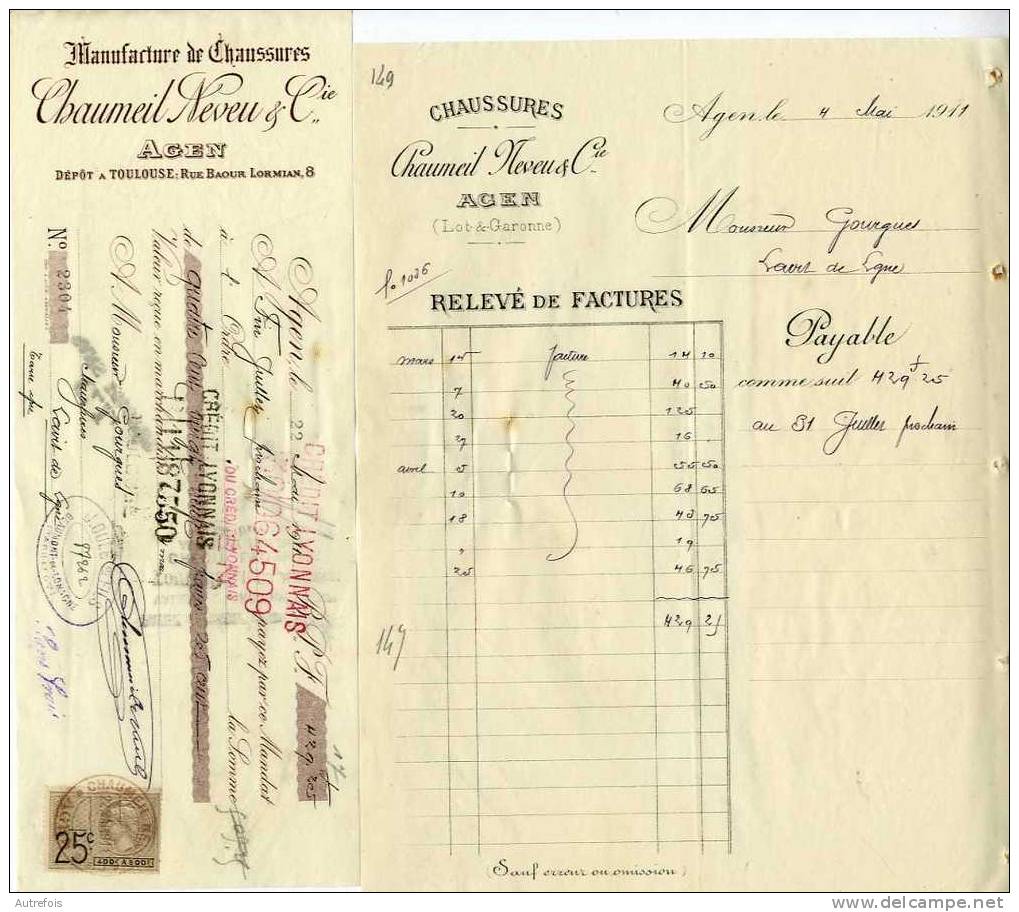 Manufacture de Chaussures
Chaumeil Neveu & Cie
AGEN
DÉPÔT A TOULOUSE: RUE BAOUR LORMIAN, 8
Agen, le 22 Mai 1911 B.P.F. 429,25
A Fin Juillet prochain payez par ce Mandat
à Ordre la Somme
de quatre cent vingt neuf francs 25 cent
Valeur reçue en marchandises
A Monsieur Gourgues
Chaussures
Lavit de Lgne
No 2304
CRÉDIT LYONNAIS
CRÉDIT LYONNAIS
64509
DU CRÉDIT LYONNAIS
8750
87262
25c
149
CHAUSSURES
Chaumeil Neveu & Cie
AGEN
(Lot-&-Garonne)
Agen, le 4 Mai 1911
Monsieur Gourgues
Lavit de Lgne
fo 1026
RELEVÉ DE FACTURES
Payable
comme suit 429f 25
au 31 Juillet prochain
mars 15 facture 14 10
7 40 50
20 125
27 16 .
avril 5 55 50
10 68 65
18 43 75
" 19
25 46 75
429 25
149
(Sauf erreur ou omission)
Autrefois
www.delcampe.net